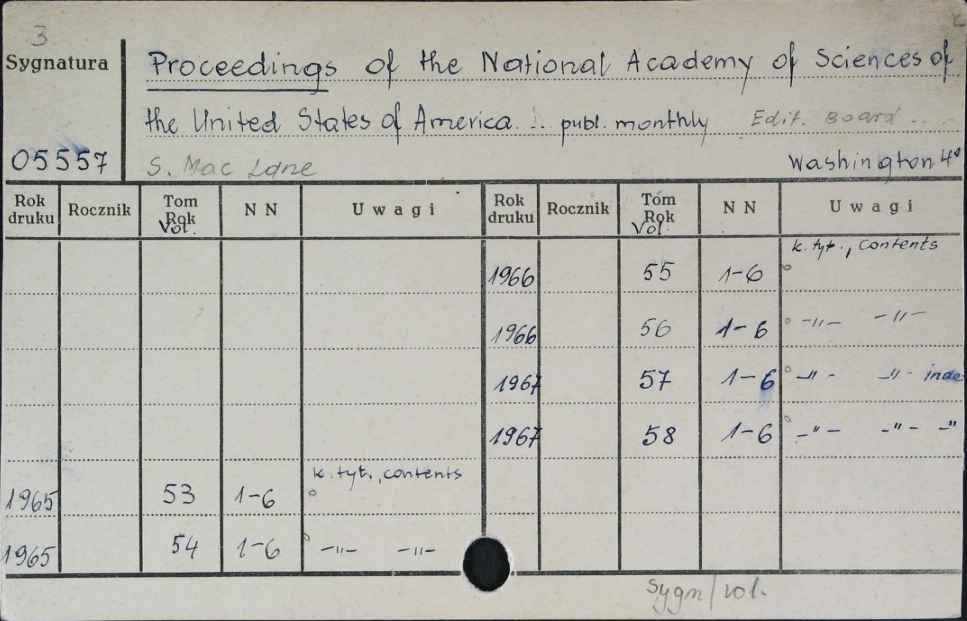 3
Sygnatura
Proceedings of the National Academy of Sciences of
the United States of America... publ. monthly Edit. Board
05557 S. Mac Lane Washington 4°
Rok druku Rocznik Tom Rok Vol. N N Uwagi Rok druku Rocznik Tom Rok Vol. N N Uwagi
k. tyt., contents
1966 55 1-6 °
1966 56 1-6 ° -"- -"-
1967 57 1-6 ° -"- -"- inde
1967 58 1-6 ° -"- -"- -"
k. tyt., contents
1965 53 1-6 °
1965 54 1-6 ° -"- -"-
Sygn/vol.